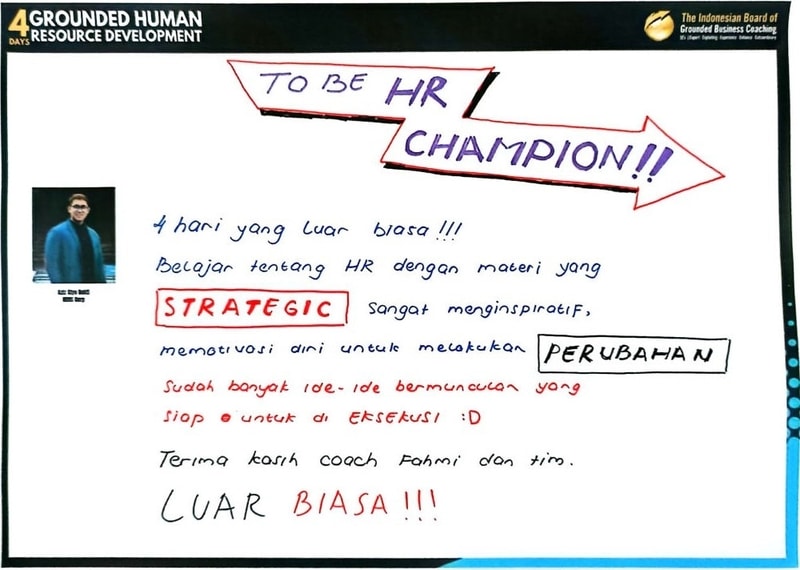 4 DAYS GROUNDED HUMAN
RESOURCE DEVELOPMENT
The Indonesian Board of
Grounded Business Coaching
TO BE HR
CHAMPION!!
4 hari yang luar biasa!!!
Belajar tentang HR dengan materi yang
STRATEGIC sangat menginspiratif,
memotivasi diri untuk melakukan PERUBAHAN
Sudah banyak ide-ide bermunculan yang
siap untuk di EKSEKUSI :D
Terima kasih coach Fahmi dan tim.
LUAR BIASA!!!